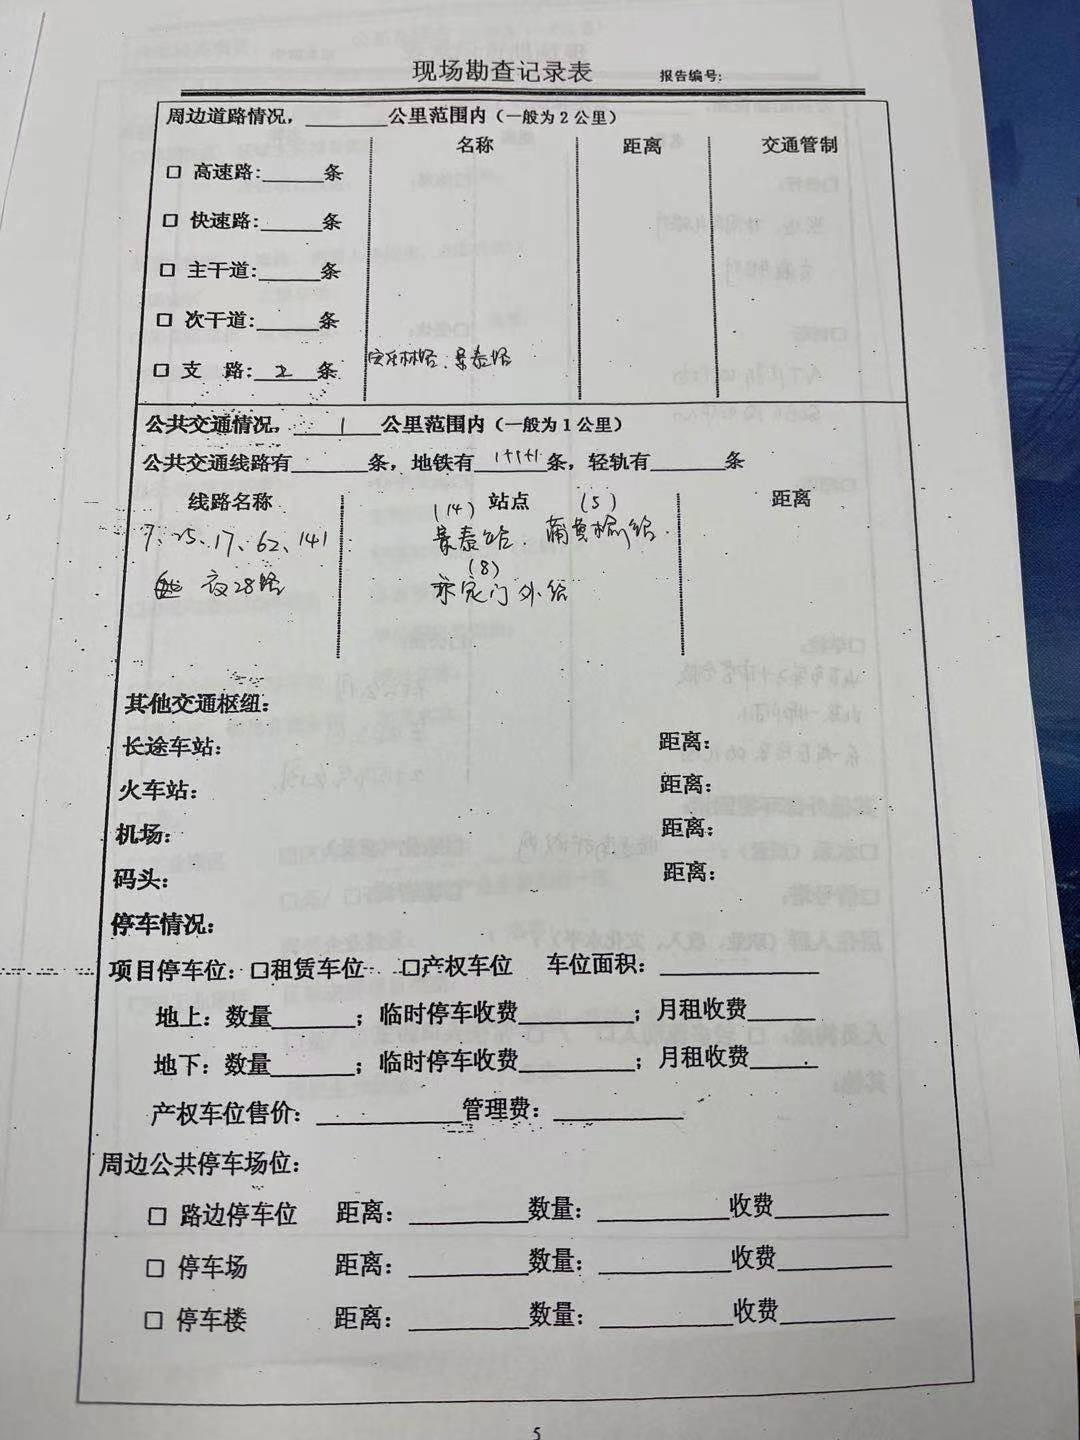 现场勘查记录表 报告编号:
周边道路情况，________公里范围内（一般为2公里）
名称 距离 交通管制
□ 高速路:______条
□ 快速路:______条
□ 主干道:______条
□ 次干道:______条
□ 支 路: 2 条 景泰路
公共交通情况， 1 公里范围内（一般为1公里）
公共交通线路有_______条，地铁有_______条，轻轨有_______条
线路名称 站点 距离
(14) (5)
7、25、17、62、141 景泰站、蒲黄榆站.
(8)
夜28路 永定门外站
其他交通枢纽：
长途车站： 距离：
火车站： 距离：
机场： 距离：
码头： 距离：
停车情况：
项目停车位：□租赁车位 □产权车位 车位面积：____________
地上：数量_______；临时停车收费_________；月租收费______
地下：数量_______；临时停车收费_________；月租收费______
产权车位售价：____________管理费：___________
周边公共停车场位：
□ 路边停车位 距离：_________数量：__________收费_________
□ 停车场 距离：_________数量：__________收费_________
□ 停车楼 距离：_________数量：__________收费_________
5